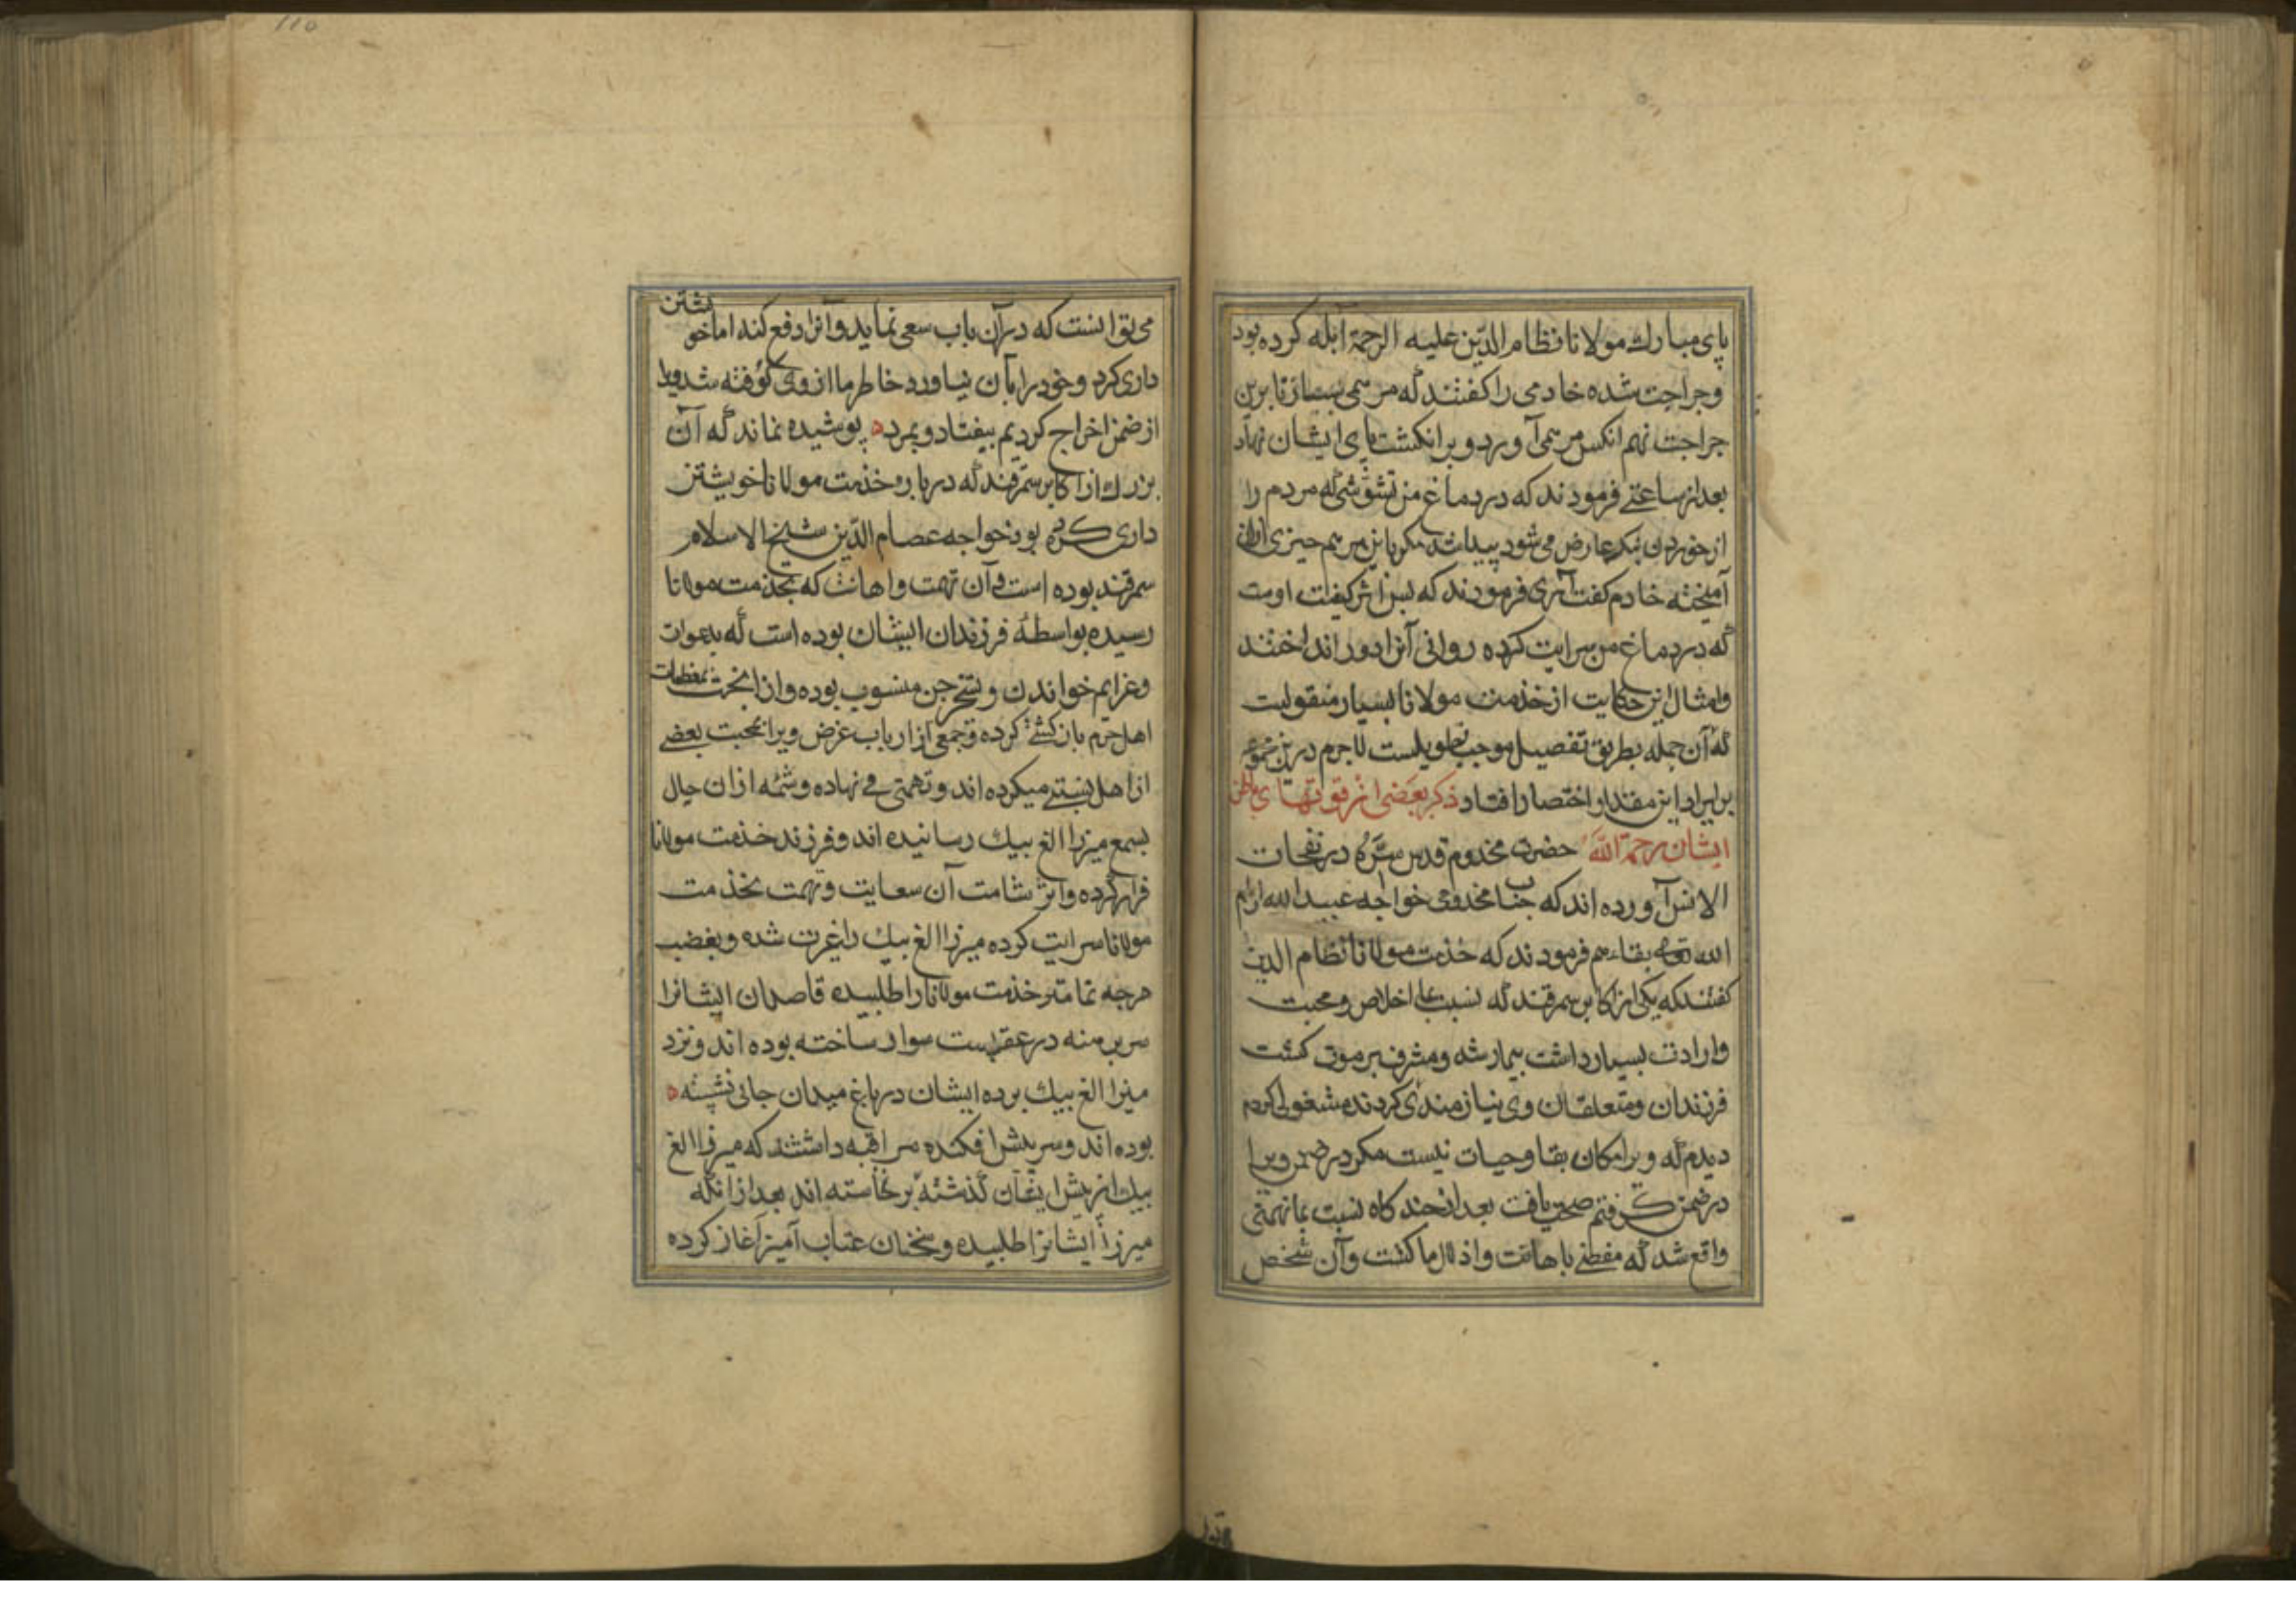 پای مبارك مولانا نظام الدّین علیه الرحمة آبله کرده بود
وجراحت شده خادمی را کفتند که مرهمی بساز تا برین
جراحت نهم انکس مرهمی آورد و بر انکشت پای ایشان نهاد
بعد از ساعتی فرمودند که در دماغ من تشوّشی که مردم را
از خوردن بنك عارض می شود پیدا شد مکر باین مرهم چیزی ازان
آمیخته خادم کفت آری فرمودند که پس اثر کیفیت اوست
که در دماغ من سرایت کرده روانی آنرا دور انداختند
وامثال این حکایت از خذمت مولانا بسیار منقولست
که آن جمله بطریق تفصیل موجب تطویلست لاجرم درین مجموعه
بر ایراد این مقدار اختصار افتاد ذکر بعضی از قوتهای باطن
ایشان رحمة اللّه حضرت مخدوم قدس سرّه در نفحات
الانس آورده اند که جناب مخدومی خواجه عبید الله ادام
الله تعالی بقاءهم فرمودند که خذمت مولانا نظام الدین
کفتند که یکی از اکابر سمرقند که نسبت بما اخلاص ومحبت
وارادت بسیار داشت بیمار شد ومشرف بر موت کشت
فرزندان ومتعلقان وی نیازمندی کردند مشغولی کردم
دیدم که ویرا امکان بقا وحیات نیست مکر در ضمن ویرا
در ضمن کرفتم صحت یافت بعد از چند کاه نسبت بما تهمتی
واقع شد که مفضی باهانت واذلال ما کشت وآن شخص
می توانست که درآن باب سعی نماید وآنرا دفع کند اما خویشتن
داری کرد وخودرا بآن نیاورد خاطر ما از وی کوفته شد ویرا
از ضمن اخراج کردیم بیفتاد وبمرد ه پوشیده نماند که آن
بزرك از اکابر سمرقند که در باره خذمت مولانا خویشتن
داری کرده بود خواجه عصام الدّین شیخ الاسلام
سمرقند بوده است وآن تهمت واهانت که بخذمت مولانا
رسیده بواسطهٔ فرزندان ایشان بوده است که بدعوات
وعزایم خواندن وتسخیر جن منسوب بوده وازانجهت بمغظمات
اهل حرم بان کستی کرده وجمعی از ارباب غرض ویرا بمحبت بعضی
از اهل بستی میکرده اند وتهمتی می نهاده وشمّه ازان حال
بسمع میرزا الغ بیك رسانیده اند وفرزند خذمت مولانا
فرار کرده واثر شامت آن سعایت وتهمت بخذمت
مولانا سرایت کرده میرزا الغ بیك را غیرت شده وبغضب
هرچه تمامتر خذمت مولانارا طلبیده قاصدان ایشانرا
سر برهنه در عقب است سوار ساخته بوده اند ونزد
میرزا الغ بیك برده ایشان در باغ میدان جائی نشسته ه
بوده اند وسر پیش افکنده مراقبه داشتند که میرزا الغ
بیك از پیش ایشان کذشته برنخاسته اند بعد ازانکه
میرزا ایشانرا طلبیده وسخنان عتاب آمیز آغاز کرده